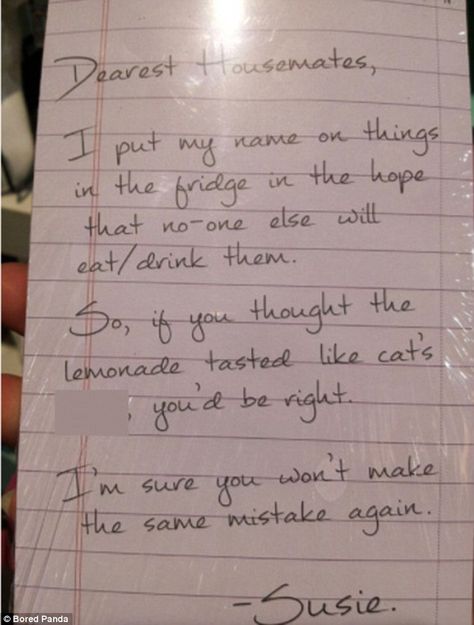 Dearest Housemates,
I put my name on things
in the fridge in the hope
that no-one else will
eat/drink them.
So, if you thought the
lemonade tasted like cat's
, you'd be right.
I'm sure you won't make
the same mistake again.
-Susie.
© Bored Panda